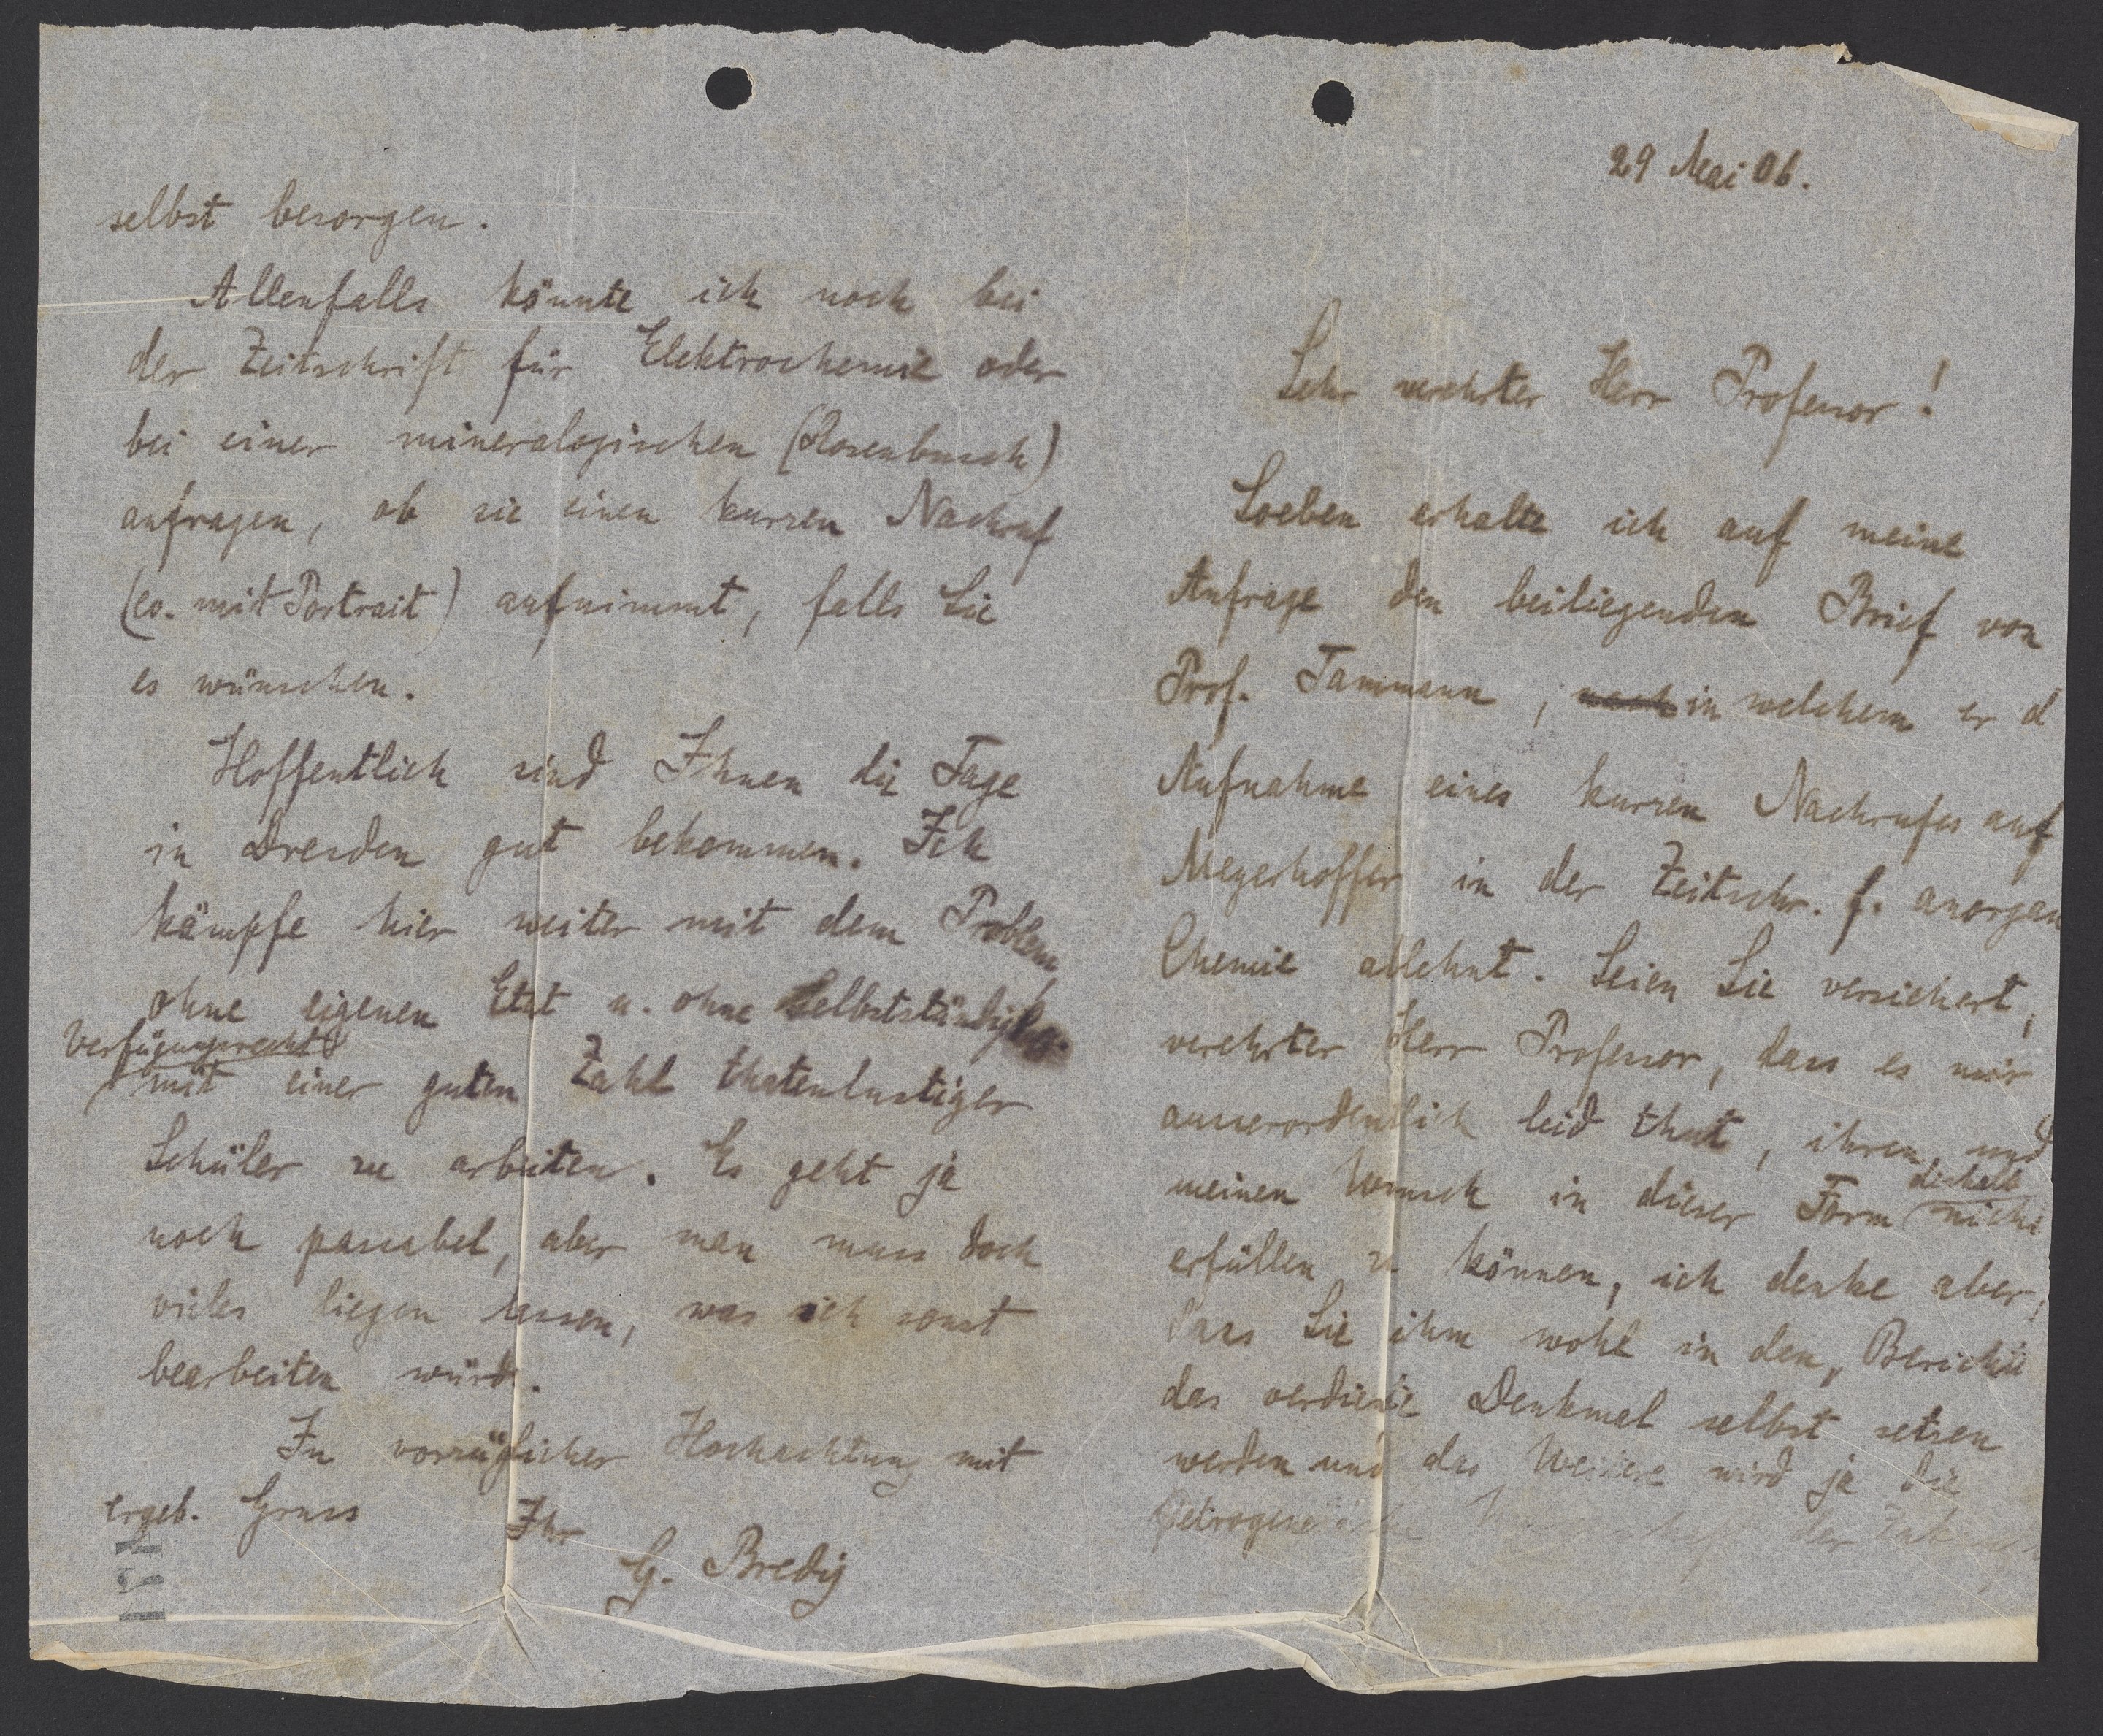 29 Mai 06.
Sehr verehrter Herr Professor!
Soeben erhalte ich auf meine
Anfrage den beiliegenden Brief von
Prof. Tammann, in welchem er d
Aufnahme eines kurzen Nachrufes auf
Meyerhoffer in der Zeitschr. f. anorgan
Chemie ablehnt. Seien Sie versichert,
verehrter Herr Professor, dass es mir
ausserordentlich leid thut, ihren und
meinen Wunsch in dieser Form deshalb nicht
erfüllen zu können, ich denke aber,
dass Sie ihm wohl in den „Berichte
das verdiente Denkmal selbst setzen
werden und das Weitere wird ja die
der
selbst besorgen.
Allenfalls könnte ich noch bei
der Zeitschrift für Elektrochemie oder
bei einer mineralogischen (Rosenbusch)
anfragen, ob sie einen kurzen Nachruf
(ev. mit Portrait) aufnimmt, falls Sie
es wünschen.
Hoffentlich sind Ihnen die Tage
in Dresden gut bekommen. Ich
kämpfe hier weiter mit dem Problem
ohne eigenen Etat u. ohne selbstständiges
Verfügungsrecht
mit einer guten Zahl thatenlustiger
Schüler zu arbeiten. Es geht ja
noch passabel, aber man muss doch
vieles liegen lassen, was ich sonst
bearbeiten würde.
In vorzüglicher Hochachtung mit
ergeb. Gruss Ihr
G. Bredig